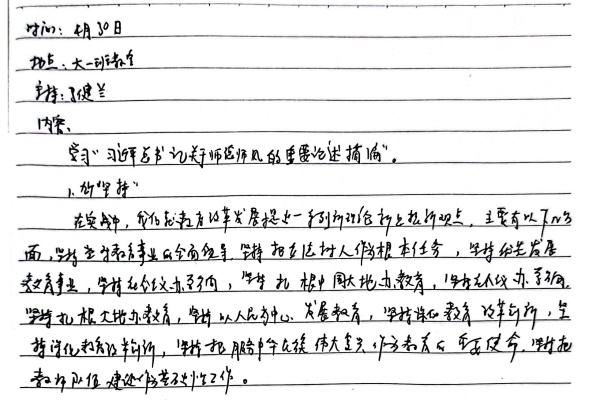 时间：4月30日
地点：大一班教室
主持：丁健兰
内容：
学习“习近平总书记关于师德师风的重要论述摘编”。
1.九个“坚持”
在实践中，我们就教育改革发展提出一系列新理论新主张新观点，主要有以下几方
面，坚持党对教育事业的全面领导，坚持把立德树人作为根本任务，坚持优先发展
教育事业，坚持社会主义办学方向，坚持扎根中国大地办教育，坚持社会主义办学方向，
坚持扎根大地办教育，坚持以人民为中心发展教育，坚持深化教育改革创新，坚
持深化教育改革创新，坚持把服务中华民族伟大复兴作为教育的重要使命，坚持把
教师队伍建设作为基础性工作。